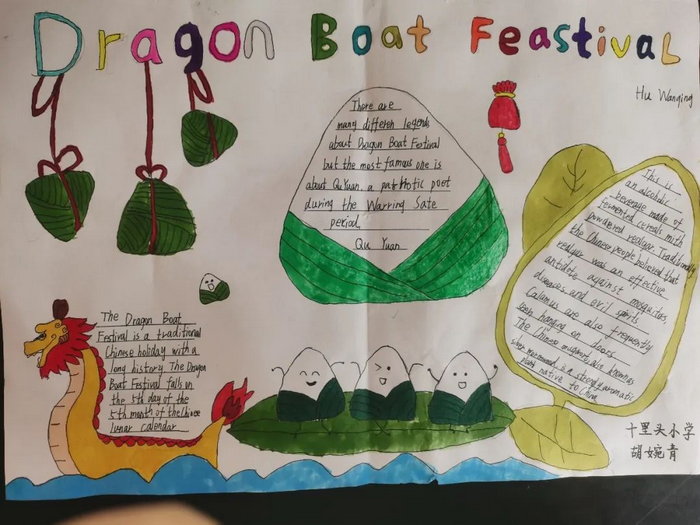 Dragon Boat Feastival
Hu Wanqing
There are
many differen legends
about Dragon Boat Festival
but the most famous one is
about Qu Yuan, a patriotic poet
during the Warring Sate
period.
Qu Yuan
This is
an alcoholic
beverage made of
fermented cereals with
powdered realgar. Traditionally,
the Chinese people believed that
realgar was an effective
antidote against mosquitos,
diseases and evil spirits
Calamus are also frequently
seen hanging on doors
The Chinese mugwort, also known as
is a strongly aromatic
plant native to China
The Dragon Boat
Festival is a traditional
Chinese holiday with a
long history. The Dragon
Boat Festival falls on
the 5th day of the
5th month of the Chinese
lunar calendar
十里头小学
胡婉青